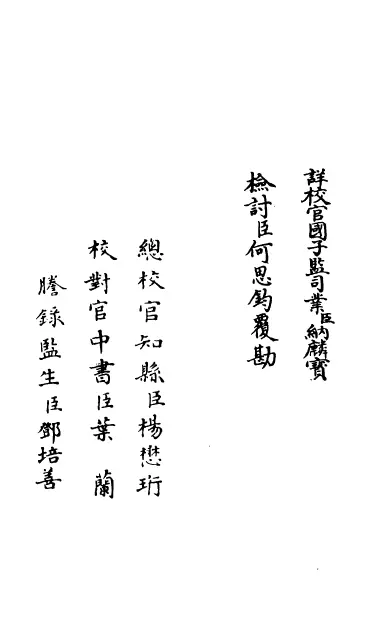 詳校官國子監司業臣納麟寶
檢討臣何思鈞覆勘
總校官知縣臣楊懋珩
校對官中書臣葉蘭
謄錄監生臣鄧培善